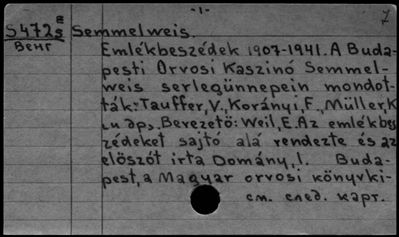 -1- 7
S472 8/5 Semmelweis.
Венг Emlékbeszédek 1907-1941. A Buda-
pesti Orvosi Kaszinó Semmel-
weis serlegünnepein mondot-
ták: Tauffer,V. Korányi,F., Müller,K
и др. Bevezetö: Weil,E. Az emlékbes
zédeket sajtó alá rendezte és az
elöszót irta Domány,I. Buda-
pest, a Magyar orvosi könyvki-
см. след. карт.